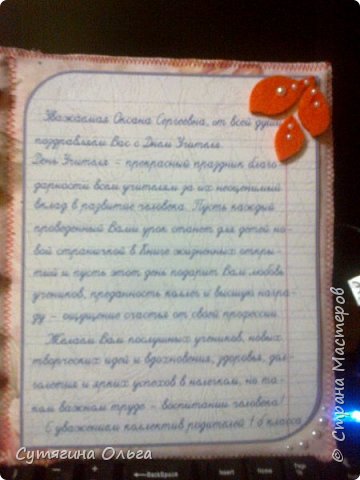 Уважаемая Оксана Сергеевна, от всей души
поздравляем Вас с Днем Учителя.
День Учителя - прекрасный праздник благо-
дарности всем учителям за их неоценимый
вклад в развитие человека. Пусть каждый
проведенный Вами урок станет для детей но-
вой страничкой в Книге жизненных откры-
тий и пусть этот день подарит Вам любовь
учеников, преданность коллег и высшую награ-
ду - ощущение счастья от своей профессии.
Желаем Вам послушных учеников, новых
творческих идей и вдохновения, здоровья, дол-
голетия и ярких успехов в нелегком, но та-
ком важном труде - воспитании человека!
С уважением коллектив родителей 1 б класса
Сутягина Ольга
© Страна Мастеров
BackSpace
Insert
Home